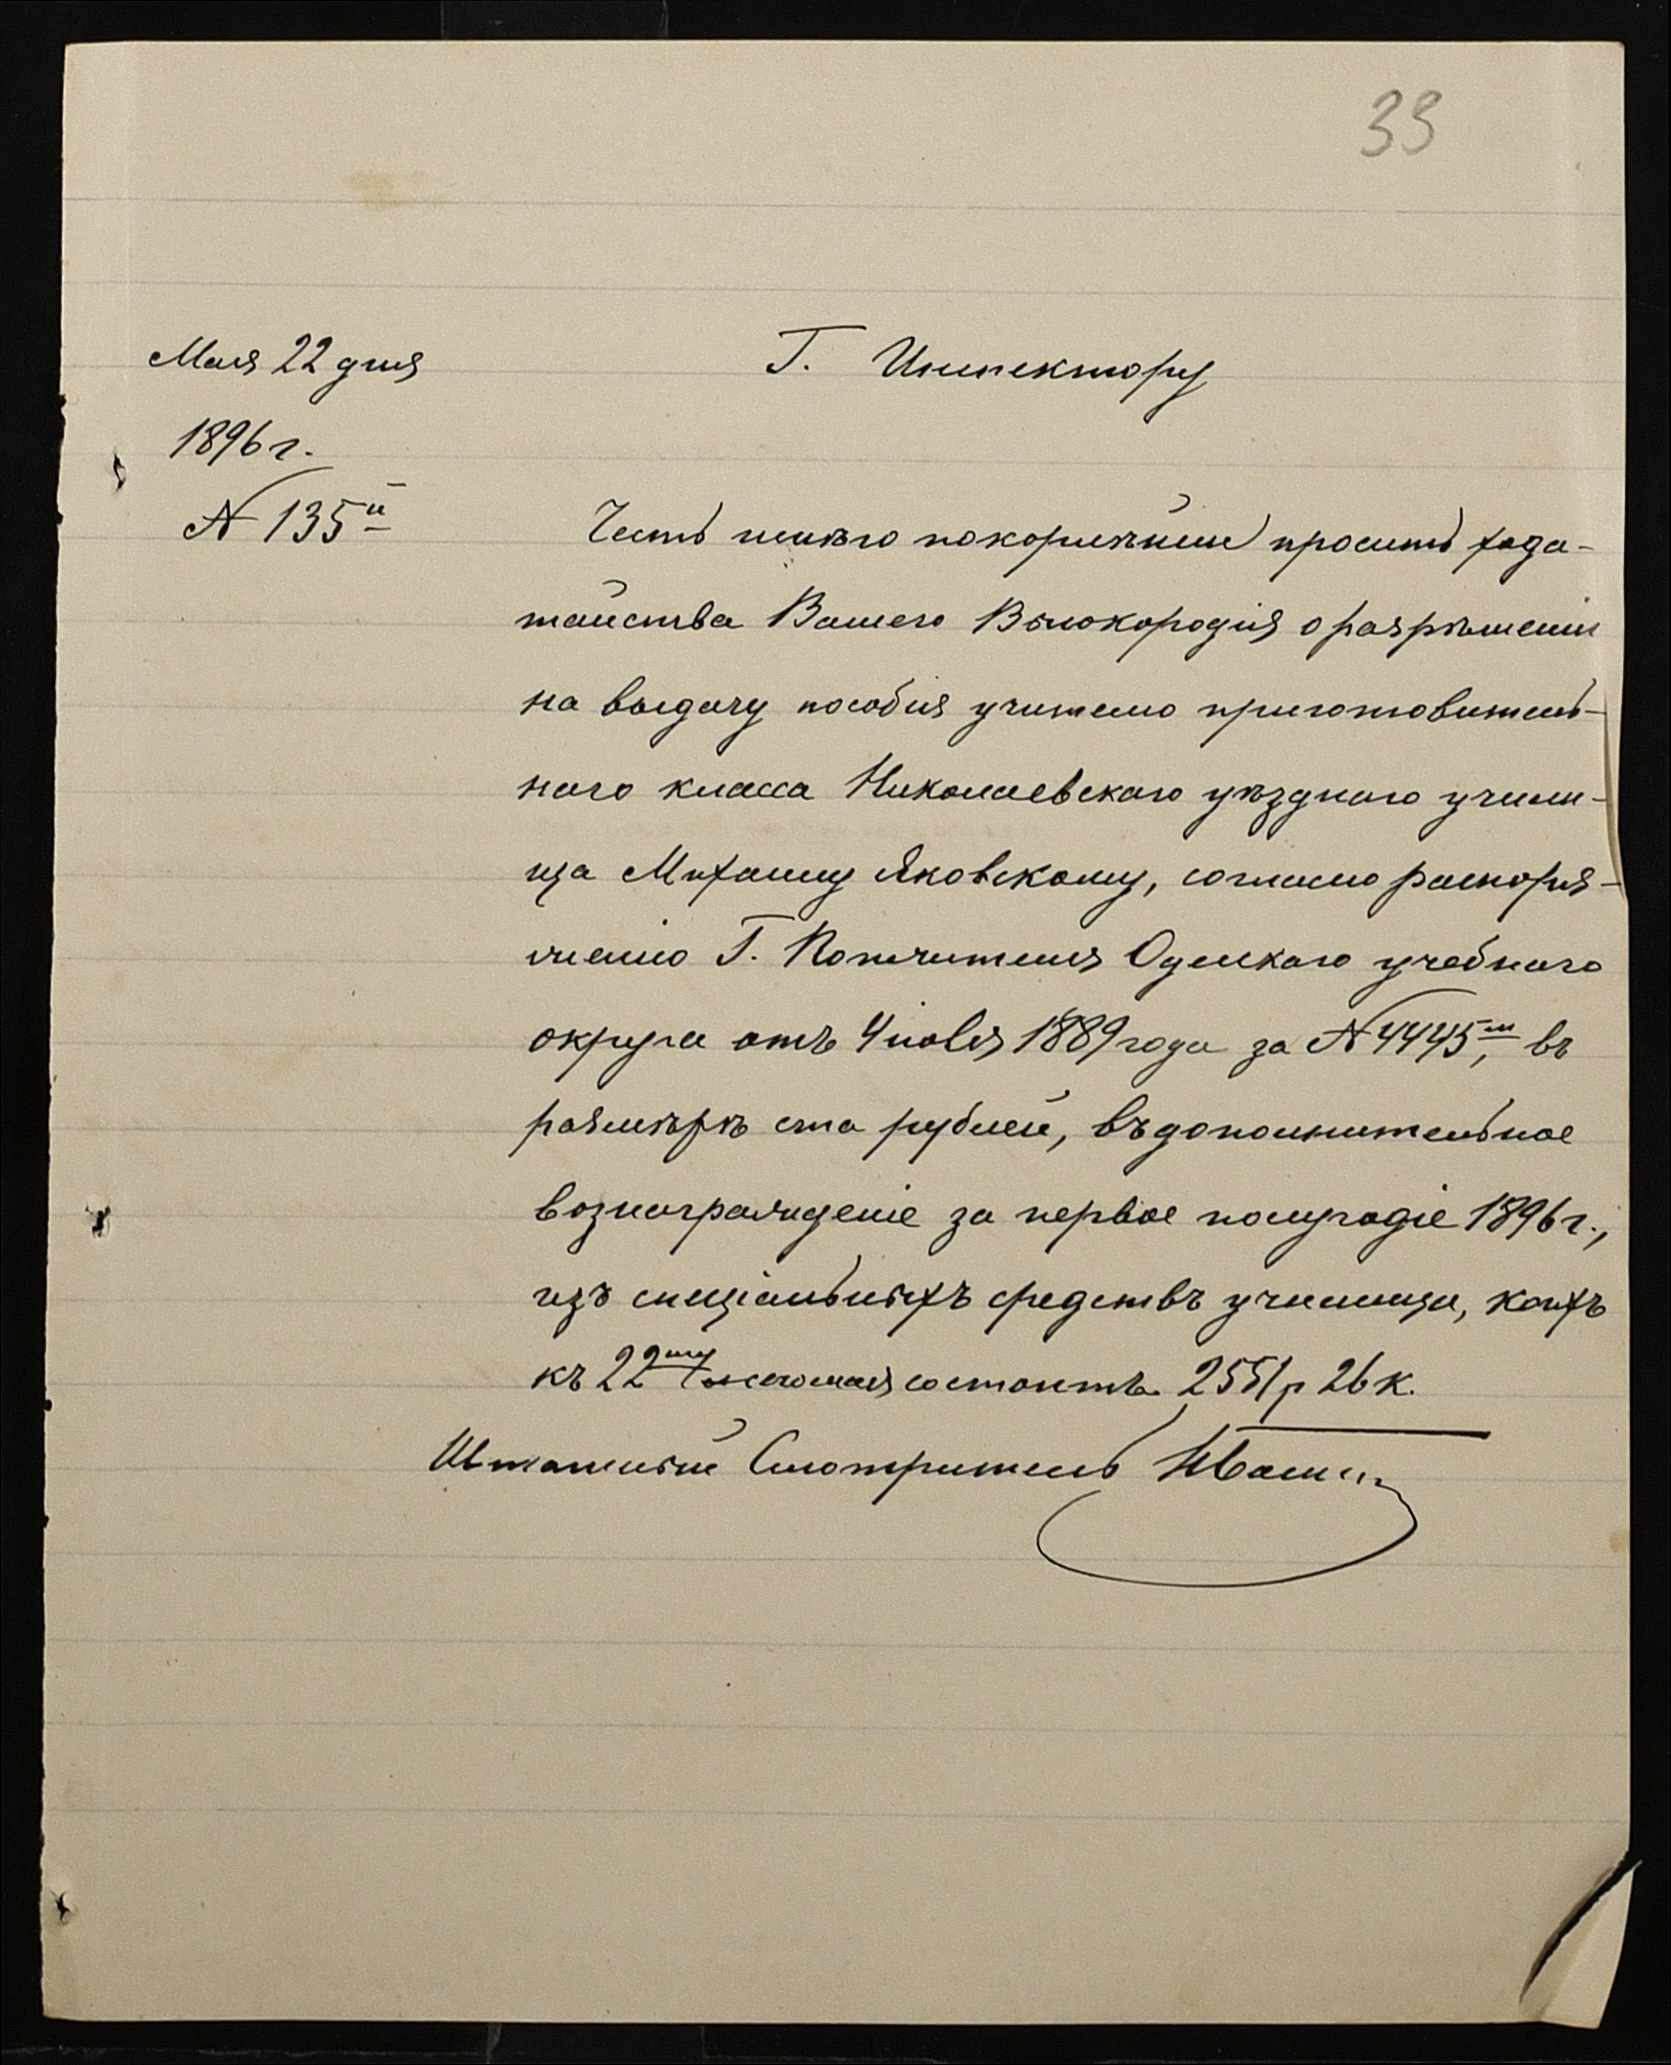 33
Мая 22 дня
1896 г.
№ 135й
Г. Инспектору
Честь имѣю покорнѣйше просить хода-
тайства Вашего Высокородія о разрѣшеніи
на выдачу пособія учителю приготовитель-
наго класса Николаевскаго уѣзднаго учили-
ща Михаилу Яковскому, согласно распоря-
женію Г. Попечителя Одесскаго учебнаго
округа отъ 4 іюля 1889 года за № 4445м, въ
размѣрѣ ста рублей, въ дополнительное
вознагражденіе за первое полугодіе 1896 г.,
изъ спеціальныхъ средствъ училища, коихъ
къ 22му сего мая состоитъ 2551 р 26 к.
Штатный Смотритель